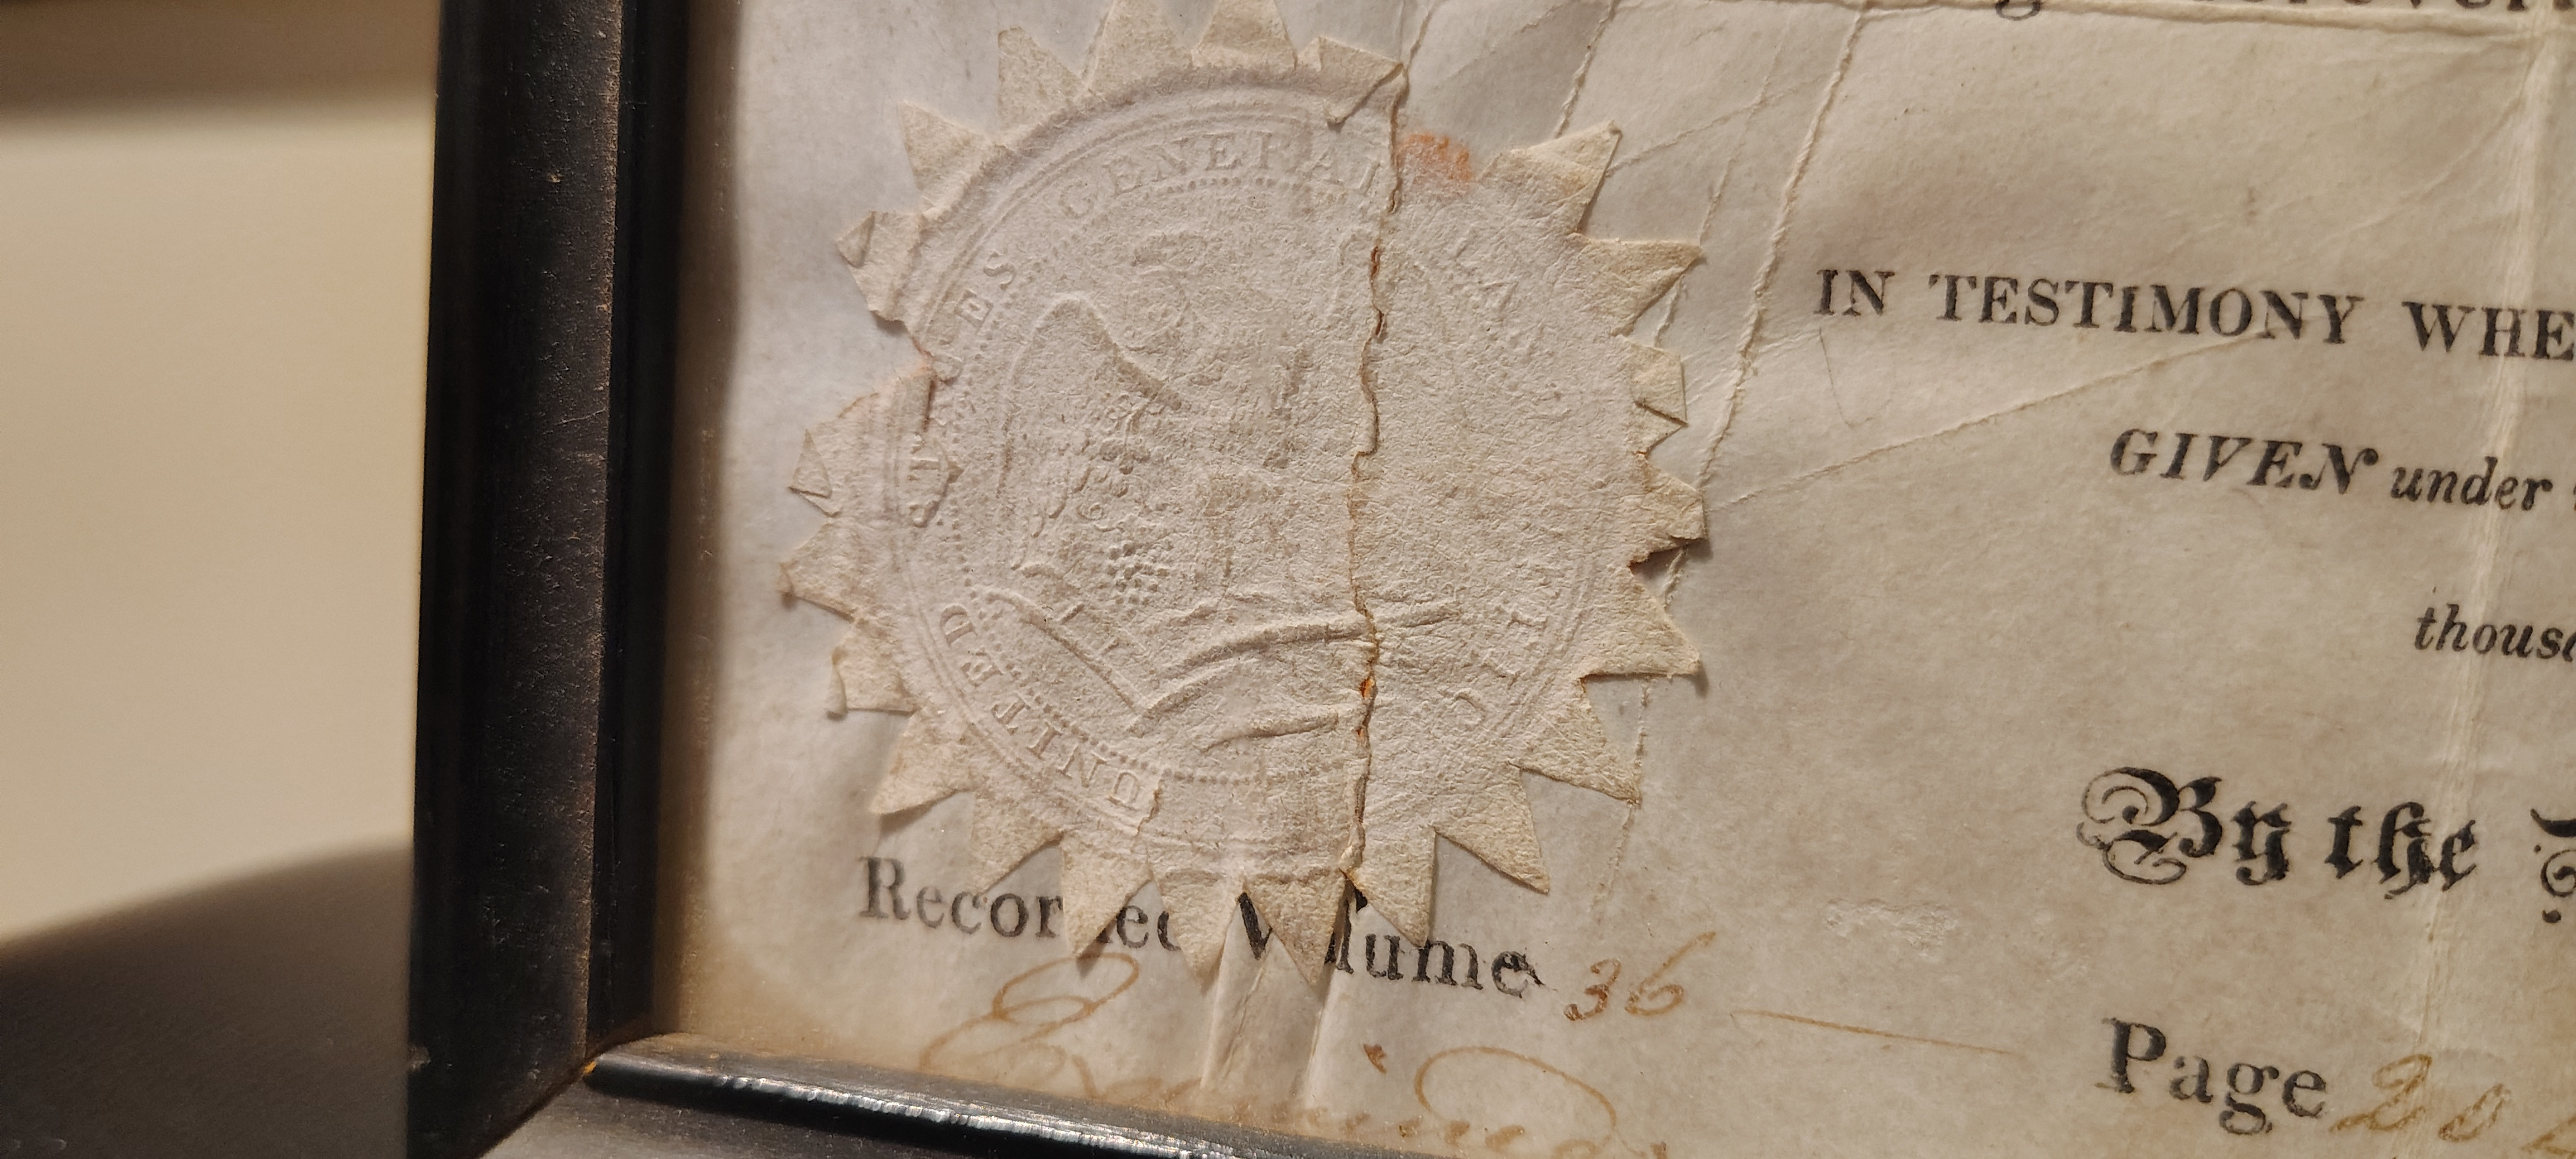 UNITED STATES GENERAL LAND OFFIC
IN TESTIMONY WHE
GIVEN under
thous
By the
Recorded Volume 36
Page 20